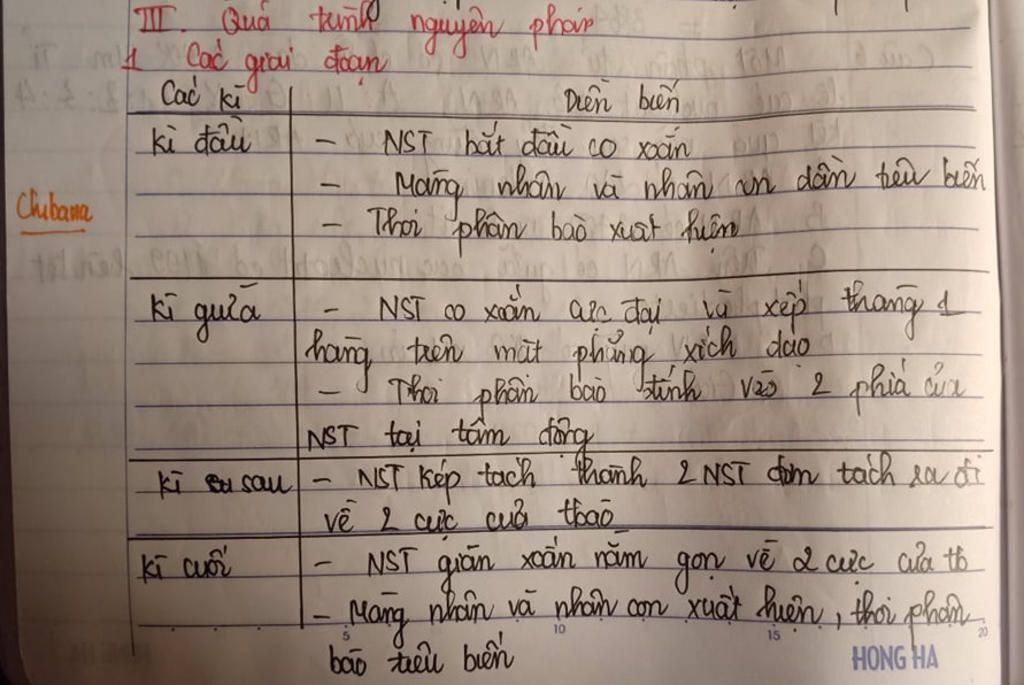 III. Quá trình nguyên phân
1 Các giai đoạn
Các kì Diễn biến
kì đầu - NST bắt đầu co xoắn
- Màng nhân và nhân con dần tiêu biến
Chibana
- Thoi phân bào xuất hiện
kì giữa - NST co xoắn cực đại và xếp thàng 1
hàng trên mặt phẳng xích đạo
- Thoi phân bào đính vào 2 phía của
NST tại tâm động
kì sau - NST kép tách thành 2 NST đơn tách ra đi
về 2 cực của tbào
kì cuối - NST giãn xoắn nằm gọn về 2 cực của tb
- Màng nhân và nhân con xuất hiện, thoi phân
5 10 15 20
bào tiêu biến
HONG HA